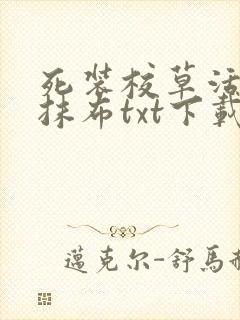 死装校草活
抹布txt下载
邁克尔-舒馬赫